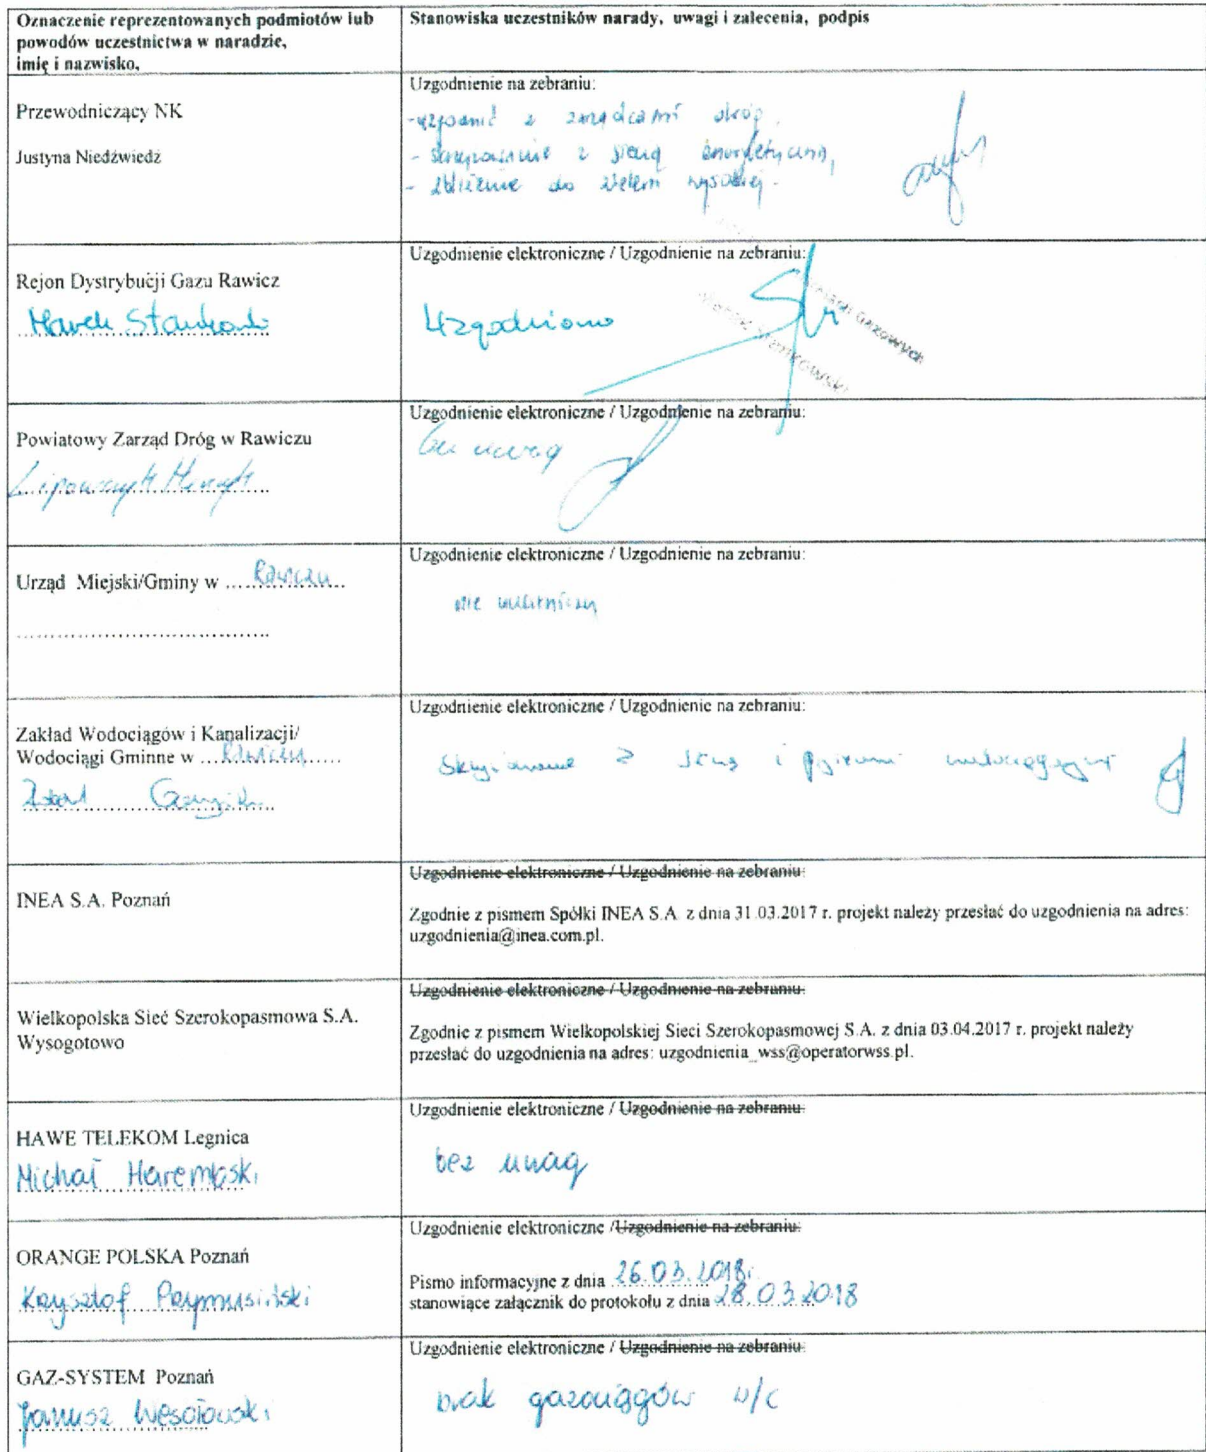 Oznaczenie reprezentowanych podmiotów lub
powodów uczestnictwa w naradzie,
imię i nazwisko.
Stanowiska uczestników narady, uwagi i zalecenia, podpis
Przewodniczący NK
Justyna Niedźwiedź
Uzgodnienie na zebraniu:
- z zarządcami dróg,
- skrzyżowanie z siecią energetyczną,
- zbliżenie do zieleni wysokiej.
Rejon Dystrybucji Gazu Rawicz
Marek Stankowski
Uzgodnienie elektroniczne / Uzgodnienie na zebraniu:
Uzgodniono
Gazowych
Powiatowy Zarząd Dróg w Rawiczu
Uzgodnienie elektroniczne / Uzgodnienie na zebraniu:
bez uwag
Urząd Miejski/Gminy w Rawiczu
Uzgodnienie elektroniczne / Uzgodnienie na zebraniu:
nie uczestniczy
Zakład Wodociągów i Kanalizacji/
Wodociągi Gminne w Rawiczu
Uzgodnienie elektroniczne / Uzgodnienie na zebraniu:
z i
INEA S.A. Poznań
Uzgodnienie elektroniczne / Uzgodnienie na zebraniu:
Zgodnie z pismem Spółki INEA S.A. z dnia 31.03.2017 r. projekt należy przesłać do uzgodnienia na adres:
uzgodnienia@inea.com.pl.
Wielkopolska Sieć Szerokopasmowa S.A.
Wysogotowo
Uzgodnienie elektroniczne / Uzgodnienie na zebraniu:
Zgodnie z pismem Wielkopolskiej Sieci Szerokopasmowej S.A. z dnia 03.04.2017 r. projekt należy
przesłać do uzgodnienia na adres: uzgodnienia_wss@operatorwss.pl.
HAWE TELEKOM Legnica
Michał Haremski
Uzgodnienie elektroniczne / Uzgodnienie na zebraniu:
bez uwag
ORANGE POLSKA Poznań
Krzysztof Prymusiński
Uzgodnienie elektroniczne /Uzgodnienie na zebraniu:
Pismo informacyjne z dnia 26.03.2018r
stanowiące załącznik do protokołu z dnia 28.03.2018
GAZ-SYSTEM Poznań
Janusz Wesołowski
Uzgodnienie elektroniczne / Uzgodnienie na zebraniu:
brak gazociągów w/c